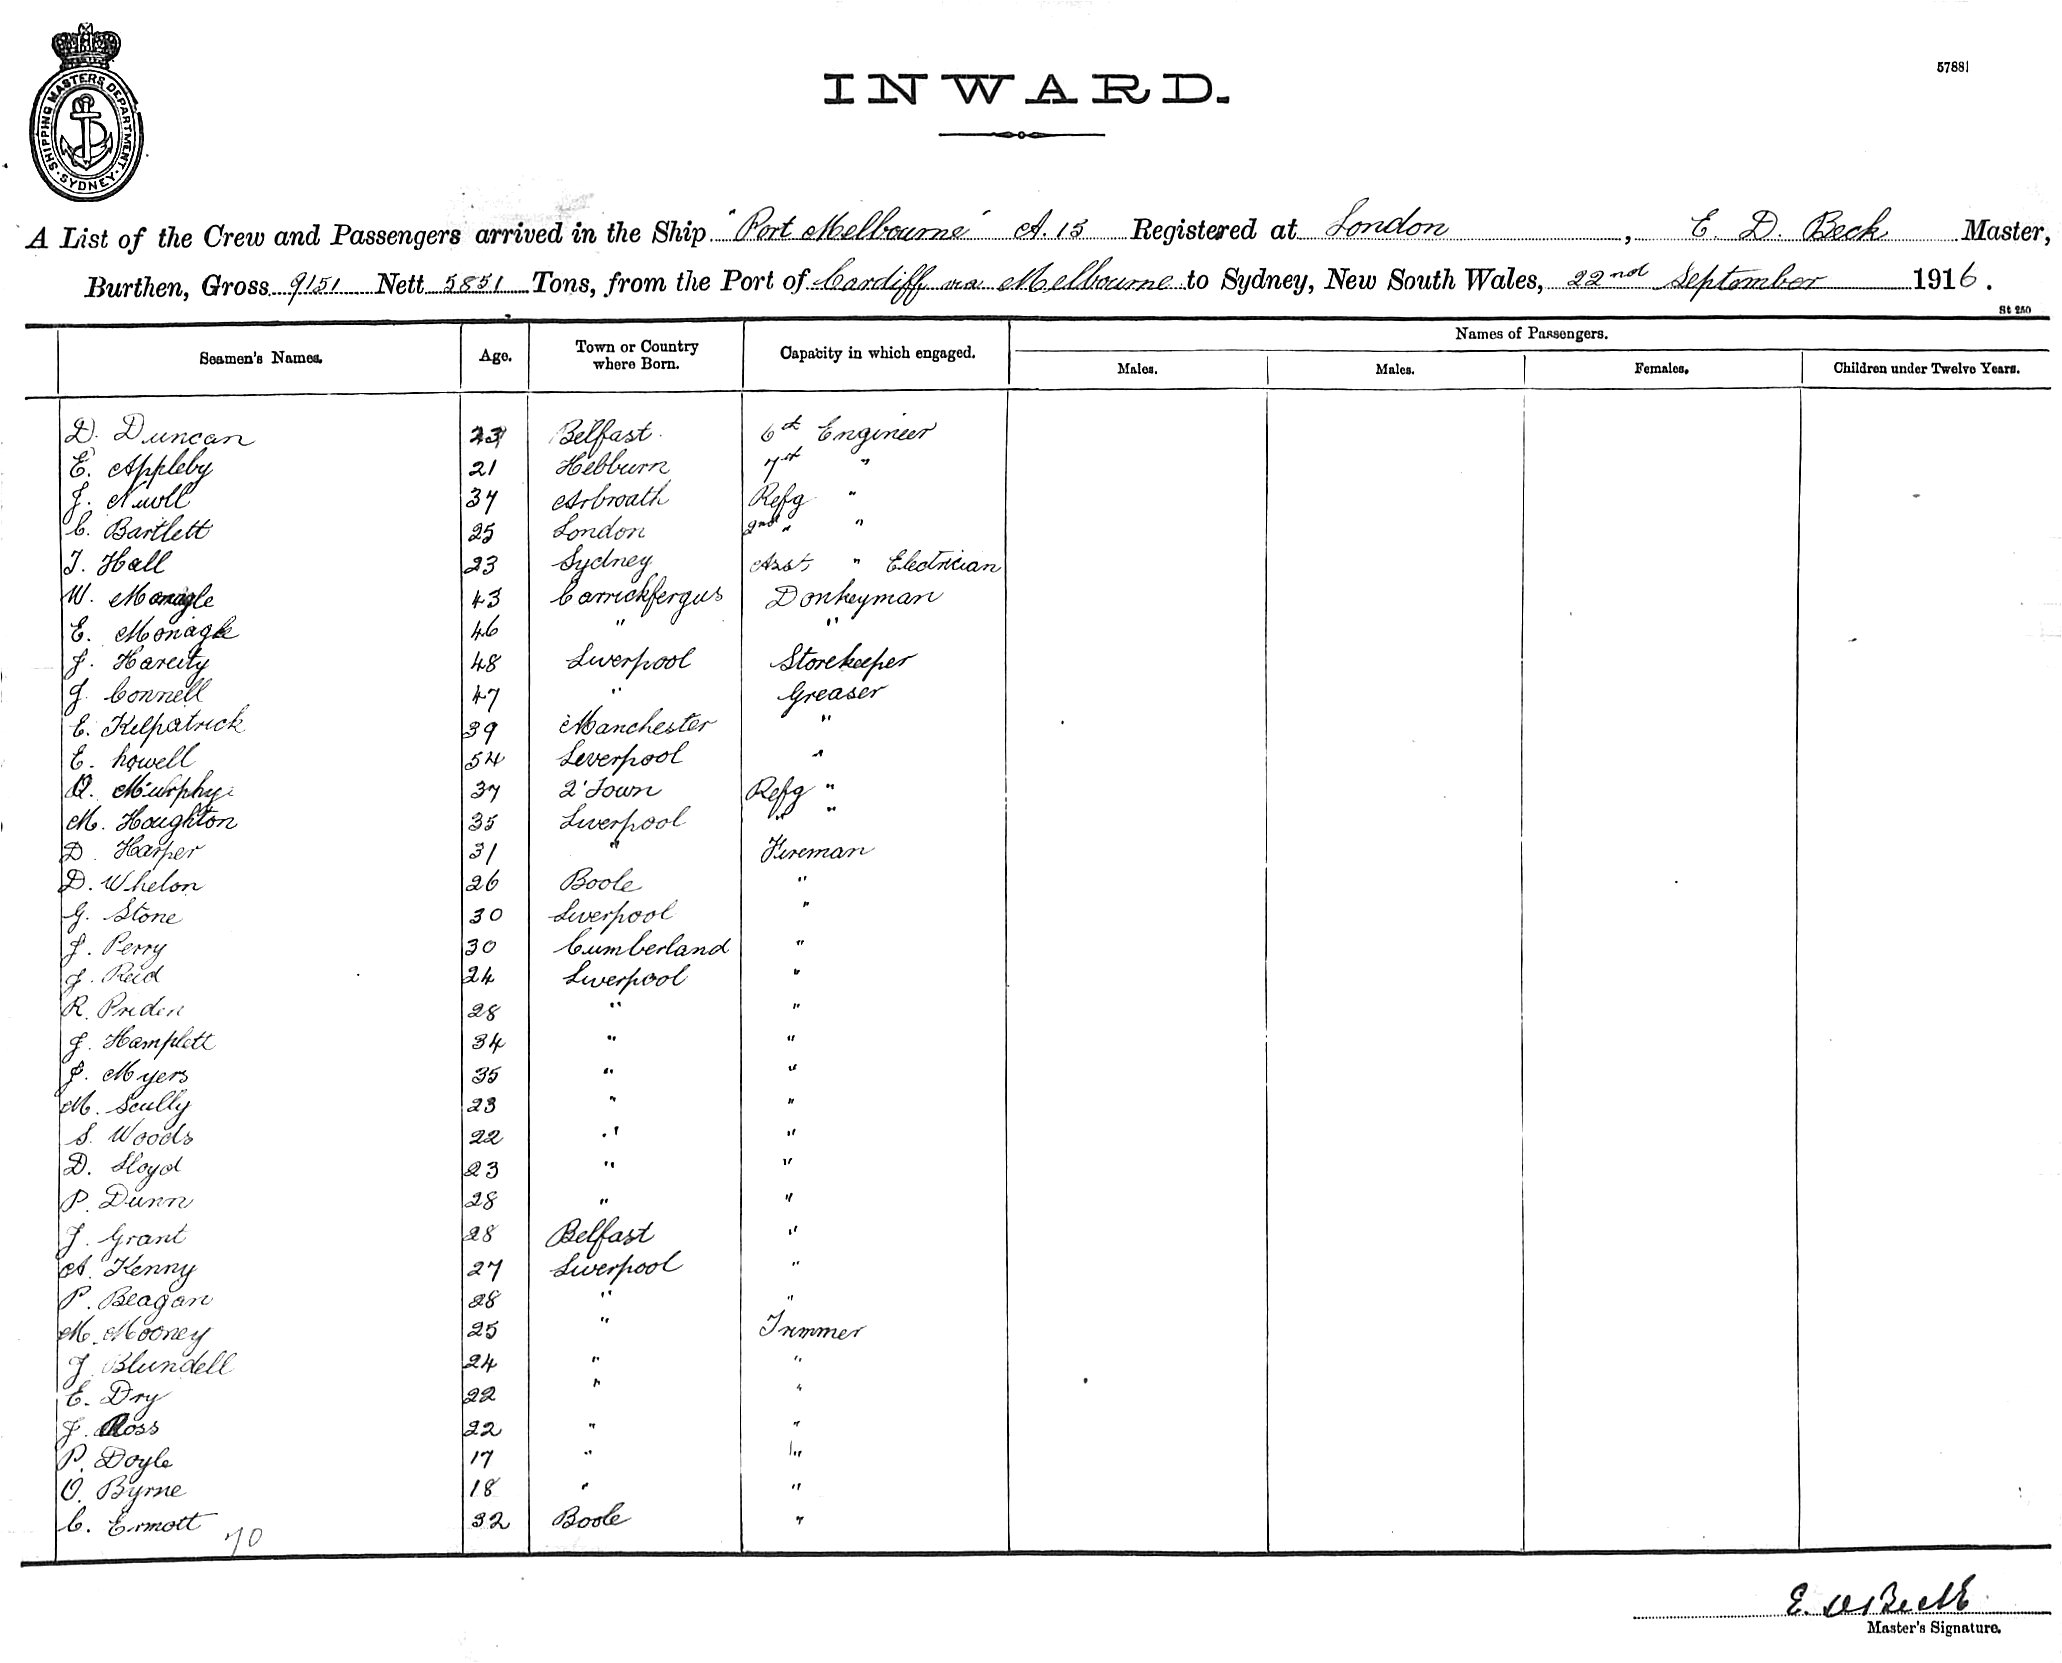 SHIPPING MASTERS DEPARTMENT. SYDNEY
57881
INWARD.
A List of the Crew and Passengers arrived in the Ship "Port Melbourne" A. 15 Registered at London, E. D. Beck Master,
Burthen, Gross 9151 Nett 5851 Tons, from the Port of Cardiff via Melbourne to Sydney, New South Wales, 22nd September 1916.
St 250
Seamen's Names. Age. Town or Country where Born. Capacity in which engaged. Names of Passengers.
Males. Males. Females. Children under Twelve Years.
D. Duncan 23 Belfast 6th Engineer
E. Appleby 21 Hebburn 7th "
J. 37 Arbroath Refg "
C. Bartlett 25 London 2nd " "
J. Hall 23 Sydney Asst " Electrician
W. Monagle 43 Carrickfergus Donkeyman
E. Monagle 46 " "
J. Hareity 48 Liverpool Storekeeper
J. Connell 47 " Greaser
E. Kilpatrick 39 Manchester "
E. howell 54 Liverpool "
Murphy 37 2'Town Refg "
M. Houghton 35 Liverpool " "
D. Harper 31 " Fireman
D. Whelon 26 Boole "
G. Stone 30 Liverpool "
J. Perry 30 Cumberland "
J. Reid 24 Liverpool "
R. Priden 28 " "
J. Hamplett 34 " "
J. Myers 35 " "
M. Scully 23 " "
S. Woods 22 " "
D. Lloyd 23 " "
P. Dunn 28 " "
J. Grant 28 Belfast "
A. Kenny 27 Liverpool "
P. Beagan 28 " "
M. Mooney 25 " Trimmer
J. Blundell 24 " "
E. Dry 22 " "
J. Ross 22 " "
P. Doyle 17 " "
O. Byrne 18 " "
C. Ermott 32 Boole "
70
E. D. Beck
Master's Signature.